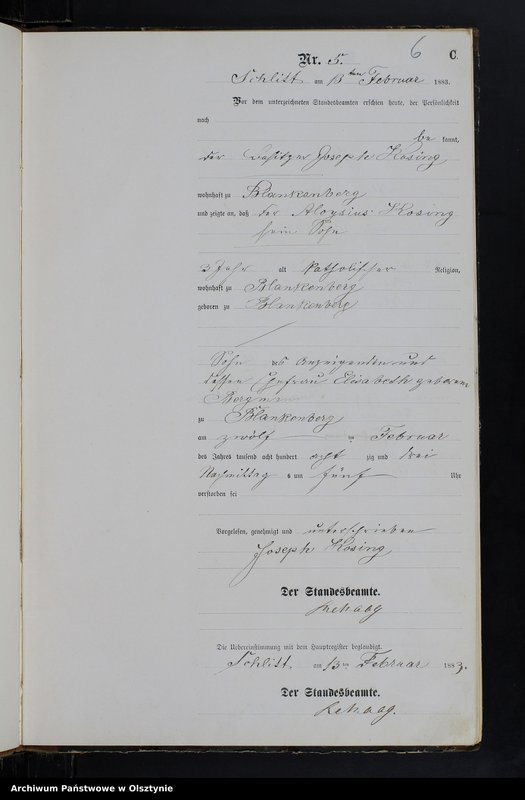 6 C.
Nr. 5.
Schlitt am 13ten Februar 1883.
Vor dem unterzeichneten Standesbeamten erschien heute, der Persönlichkeit
nach
be kannt,
der Besitzer Joseph Kosing
wohnhaft zu Blankenberg
und zeigte an, daß der Aloysius Kosing
sein Sohn
3 Jahr alt katholischer Religion,
wohnhaft zu Blankenberg
geboren zu Blankenberg
Sohn des Anzeigenden und
dessen Ehefrau Elisabeth geborene
Bergmann
zu Blankenberg
am zwölf ten Februar
des Jahres tausend acht hundert acht zig und drei
Nachmittag s um fünf Uhr
verstorben sei
Vorgelesen, genehmigt und unterschrieben
Joseph Kosing
Der Standesbeamte.
Rehaag
Die Uebereinstimmung mit dem Hauptregister beglaubigt.
Schlitt am 13ten Februar 1883.
Der Standesbeamte.
Rehaag.
Archiwum Państwowe w Olsztynie